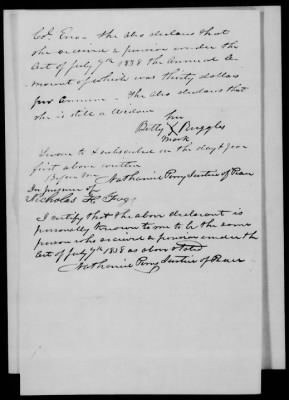 Col. Enos. She Also declares that
she received a pension under the
Act of July 7th 1838 the Annual A-
mount of which was thirty dollars
per Annum. She Also declares that
she is still a Widow
her
Betty X Ruggles
mark
Sworn to & subscribed on the day & year
first above written
Before me
Nathaniel Perry Justice of Peace
In presence of
Nicholas H.
I certify that the above declarant is
personally known to me to be the same
person who received a pension under the
Act of July 7th 1838 as above stated
Nathaniel Perry Justice of Peace